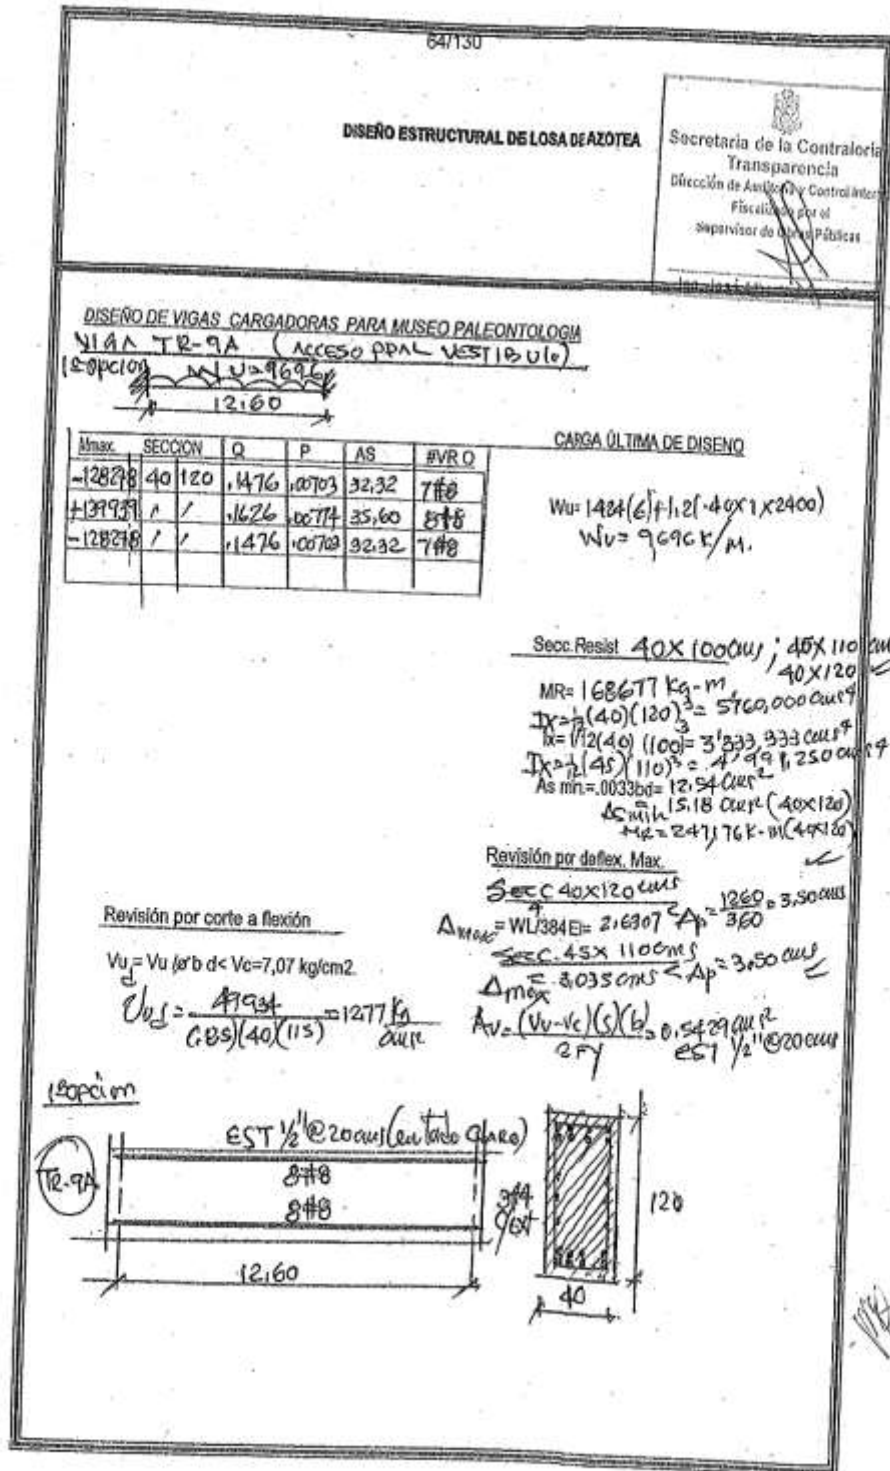 64/130
DISEÑO ESTRUCTURAL DE LOSA DE AZOTEA
Secretaria de la Contraloria
Transparencia
Dirección de Auditoría y Control Inter
Fiscalizado por el
Supervisor de Obras Públicas
DISEÑO DE VIGAS CARGADORAS PARA MUSEO PALEONTOLOGIA
VIGA TR-9A (ACCESO PPAL VESTIBULO)
1ªopcion WU=9696
12.60
Mmax. SECCION Q P AS #VR O
-128278 40 120 .1476 .00703 32.32 7#8
+139939 " " .1626 .00774 35,60 8#8
-128278 " " .1476 .00703 32.32 7#8
CARGA ÚLTIMA DE DISENO
Wu= 1424(6)+1.2(.40X1X2400)
WU= 9,696 K/M.
Secc. Resist 40X100cms ; 45X110 cm
40X120
MR= 168677 Kg-m,
IX=1/12(40)(120)³= 5760,000 cms⁴
Ix= 1/12(40) (100)³= 3'333,333 cms⁴
IX=1/12(45)(110)³= 4'991,250 cms⁴
As min=.0033bd= 12.54 cms²
Asmin= 15.18 cms² (40X120)
MR= 247,176K-m(40X120)
Revisión por deflex. Max.
SECC 40X120 cms
Δmax = WL⁴/384EI= 2,6907 < Δp=1260/360=3.50 cms
SECC. 45X 110cms
Δmax = 3,035 cms < Δp=3.50 cms
Revisión por corte a flexión
Vu = Vu /ø b d< Vc=7,07 kg/cm2.
= 47934/(.85)(40)(115) =1277 Kg/cm²
Av= (Vu-Vc)(S)(b)/2FY =0.5429 cm²
EST 1/2"@20cms
1ªopcion
EST 1/2"@20cms(en todo claro)
TR-9A
8#8
8#8
12.60
120
40